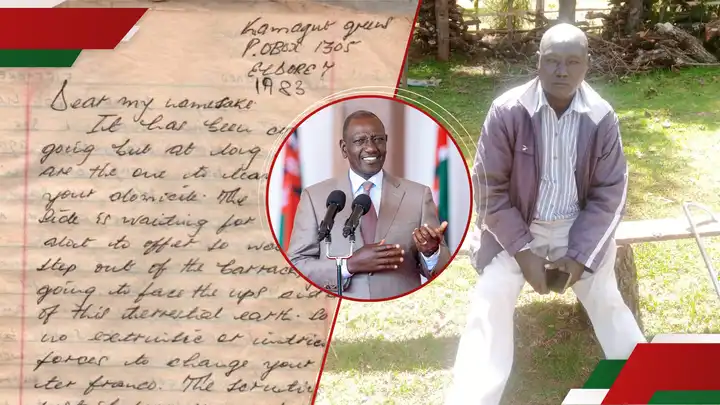 Kamagut green
P.O BOX 1305
ELDORET
1983
Dear my namesake
It has been on
going but at long
are the one to clear
your domicile. The
side is waiting for
alot to offer so wa
step out of the barrack
going to face the ups and
of this terrestial earth. So
no extrinsic or intric
forces to change your
ter franco. The scrutin